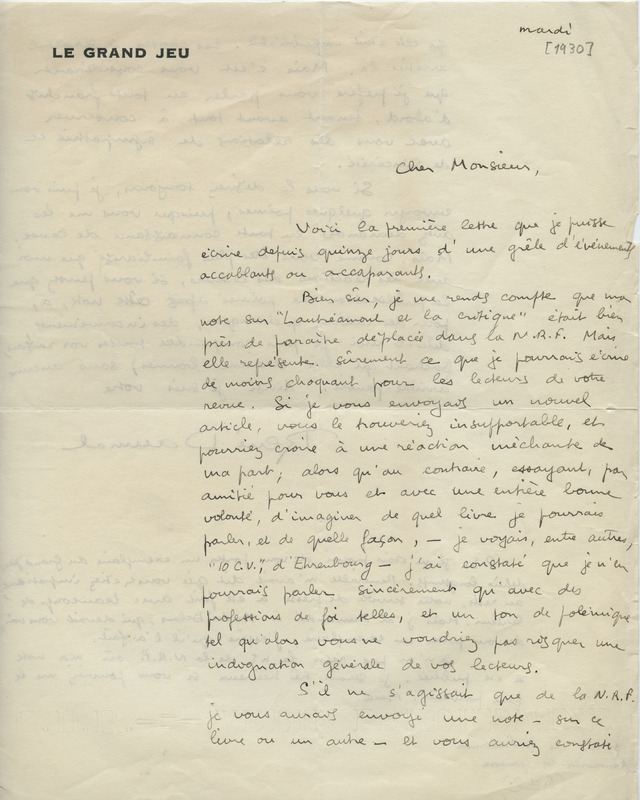 mardi
[1930]
LE GRAND JEU
Cher Monsieur,
Voici la première lettre que je puisse
écrire depuis quinze jours d'une grêle d'événements
accablants ou accaparants.
Bien sûr, je me rends compte que ma
note sur "Lautréamont et la critique" était bien
près de paraître déplacée dans la N.R.F. Mais
elle représente sûrement ce que je pourrais écrire
de moins choquant pour les lecteurs de votre
revue. Si je vous envoyais un nouvel
article, vous le trouveriez insupportable, et
pourriez croire à une réaction méchante de
ma part; alors qu'au contraire, essayant, par
amitié pour vous et avec une entière bonne
volonté, d'imaginer de quel livre je pourrais
parler, et de quelle façon, — je voyais, entre autres,
"10 C.V.", d'Ehrenbourg — j'ai constaté que je n'en
pourrais parler sincèrement qu'avec des
professions de foi telles, et un ton de polémique
tel qu'alors vous ne voudriez pas risquer une
indignation générale de vos lecteurs.
S'il ne s'agissait que de la N.R.F.
je vous aurais envoyé une note — sur ce
livre ou un autre — et vous auriez constaté